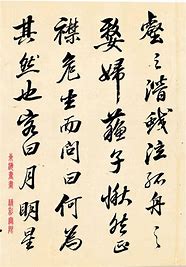 壑之潛蛟泣孤舟之
嫠婦蘇子愀然正
襟危坐而問曰何為
其然也客曰月明星